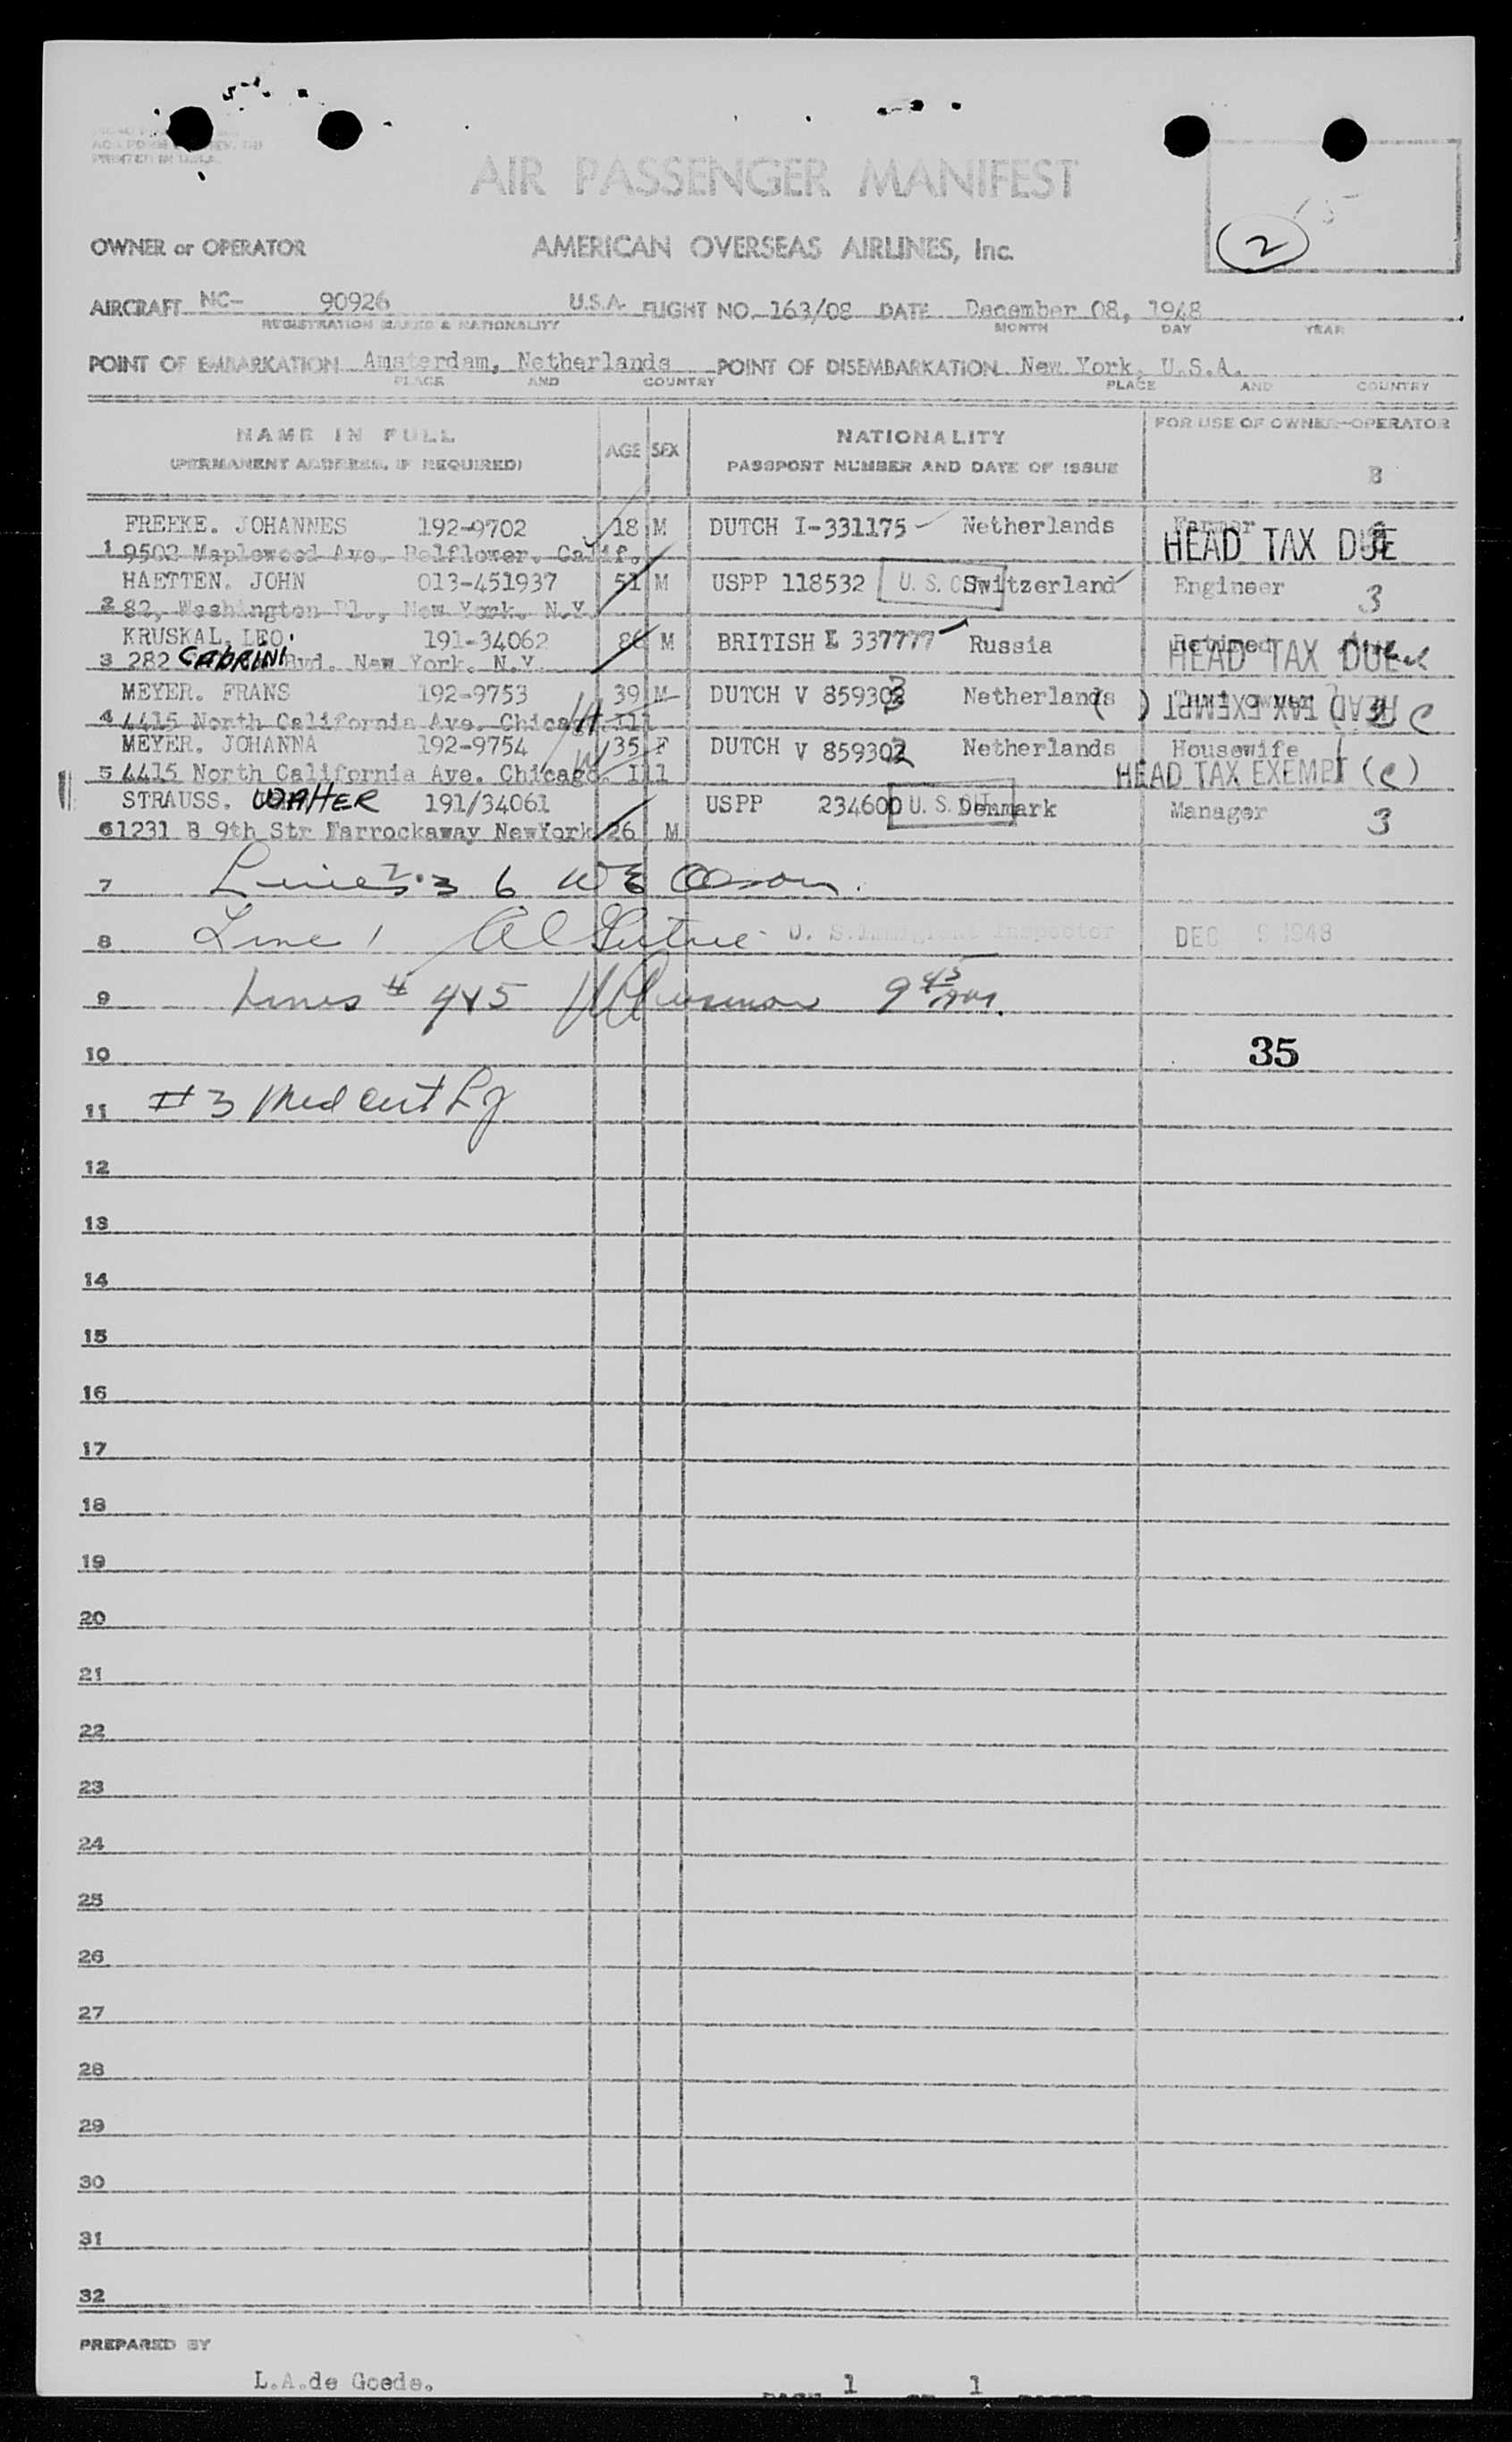 PRINTED IN U.S.A.
AIR PASSENGER MANIFEST
15
2
OWNER or OPERATOR AMERICAN OVERSEAS AIRLINES, Inc.
AIRCRAFT NC- 90926 U.S.A. FLIGHT NO. 163/08 DATE December 08, 1948
REGISTRATION MARKS & NATIONALITY MONTH DAY YEAR
POINT OF EMBARKATION Amsterdam, Netherlands POINT OF DISEMBARKATION New York, U.S.A.
PLACE AND COUNTRY PLACE AND COUNTRY
NAME IN FULL AGE SEX NATIONALITY FOR USE OF OWNER-OPERATOR
(PERMANENT ADDRESS, IF REQUIRED) PASSPORT NUMBER AND DATE OF ISSUE B
FREEKE. JOHANNES 192-9702 18 M DUTCH I-331175 Netherlands Farmer
HEAD TAX DUE
1 9502 Maplewood Ave. Belflower. Calif.
HAETTEN. JOHN 013-451937 51 M USPP 118532 U.S.C Switzerland Engineer 3
2 82, Washington Pl., New York. N.Y.
KRUSKAL, LEO. 191-34062 M BRITISH L 337777 Russia Retired
HEAD TAX DUE
3 282 CABRINI Bvd. New York. N.Y.
MEYER. FRANS 192-9753 39 M DUTCH V 859303 Netherlands
HEAD TAX EXEMPT ( ) C
4 4415 North California Ave. Chicago. Ill
MEYER. JOHANNA 192-9754 35 F DUTCH V 859302 Netherlands Housewife
HEAD TAX EXEMPT (C)
5 4415 North California Ave. Chicago. Ill
STRAUSS. WALTER 191/34061 USPP 234600 U.S. Denmark Manager 3
6 1231 B 9th Str Farrockaway NewYork 26 M
7 Lines 2.3 6 WE Olson.
8 Line 1 U. S. Immigrant Inspector DEC 9 1948
9 Lines # 4&5 9 45 am.
10 35
11 #3 Med cert
12
13
14
15
16
17
18
19
20
21
22
23
24
25
26
27
28
29
30
31
32
PREPARED BY
L.A.de Goede.
PAGE 1 OF 1 PAGES